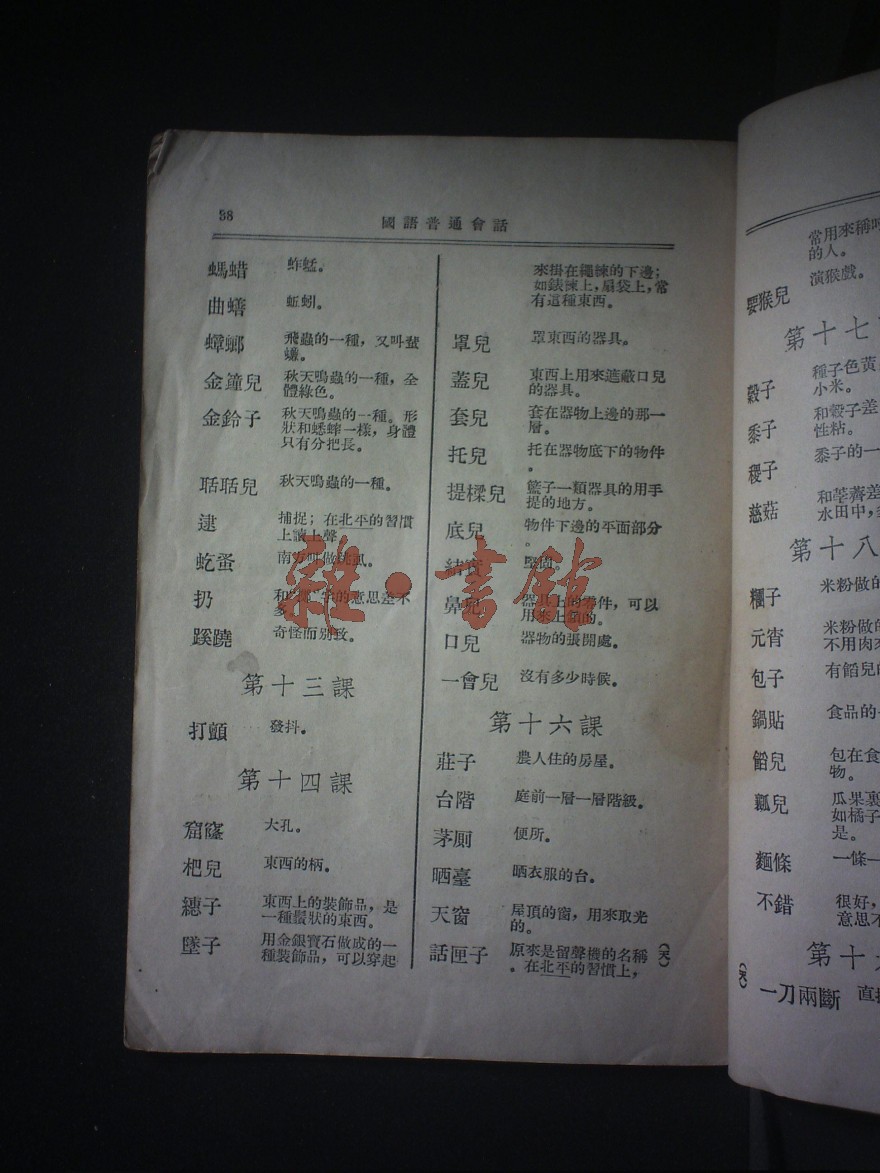 38
國語普通會話
螞蜡 蚱蜢。
曲蟮 蚯蚓。
蟑螂 飛蟲的一種，又叫蜚
蠊。
金鐘兒 秋天鳴蟲的一種，全
體綠色。
金鈴子 秋天鳴蟲的一種。形
狀和蟋蟀一樣，身體
只有分把長。
聒聒兒 秋天鳴蟲的一種。
逮 捕捉；在北平的習慣
上讀上聲
虼蚤 南方叫做跳虱。
扔 和 字的意思差不
多。
蹊蹺 奇怪而別致。
第十三課
打顫 發抖。
第十四課
窟窿 大孔。
杷兒 東西的柄。
繐子 東西上的裝飾品，是
一種鬚狀的東西。
墜子 用金銀寶石做成的一
種裝飾品，可以穿起
來掛在繩楝的下邊；
如錶楝上，扇袋上，常
有這種東西。
罩兒 罩東西的器具。
蓋兒 東西上用來遮蔽口兒
的器具。
套兒 套在器物上邊的那一
層。
托兒 托在器物底下的物件
。
提樑兒 籃子一類器具的用手
提的地方。
底兒 物件下邊的平面部分
。
結實 堅固。
鼻兒 器具上的零件，可以
用來上鎖的。
口兒 器物的張開處。
一會兒 沒有多少時候。
第十六課
莊子 農人住的房屋。
台階 庭前一層一層階級。
茅厠 便所。
晒臺 晒衣服的台。
天窗 屋頂的窗，用來取光
的。
話匣子 原來是留聲機的名稱
。在北平的習慣上，
常用來稱呼
的人。
耍猴兒 演猴戲。
第十七
穀子 種子色黃
小米。
黍子 和穀子差
性粘。
稷子 黍子的一
慈菇 和荸薺差
水田中，
第十八
糰子 米粉做的
元宵 米粉做的
不用肉來
包子 有餡兒的
鍋貼 食品的一
餡兒 包在食
物。
瓤兒 瓜果裏
如橘子
是。
麵條 一條一
不錯 很好，
意思不
第十
一刀兩斷 直
雜·書館